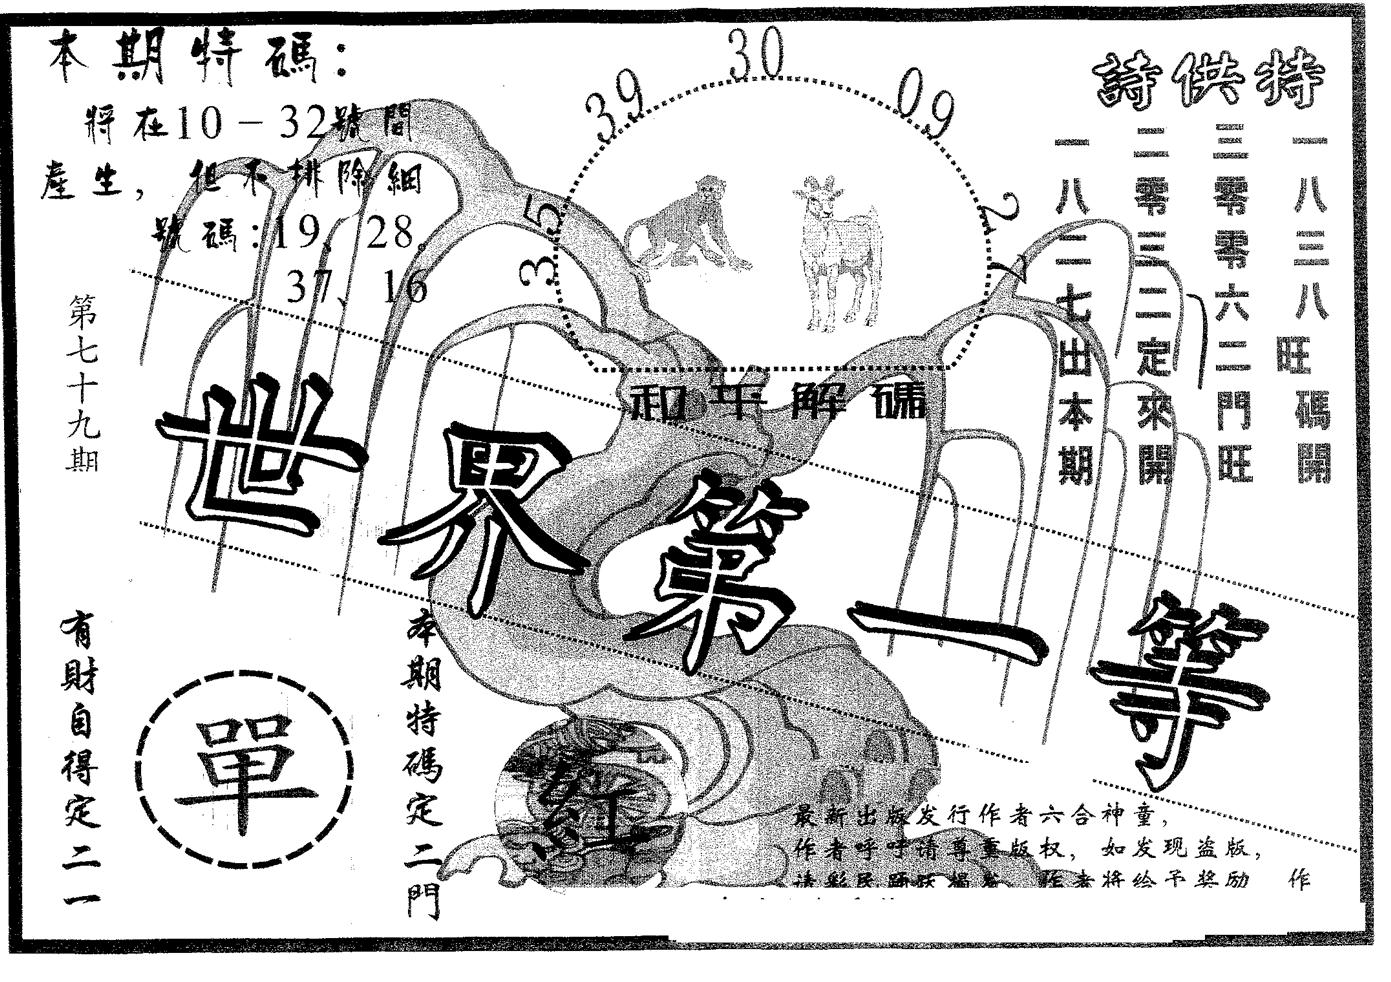 本期特碼：
將在10－32號間
產生，但不排除細
號碼：19、28。
37、16
39
30
09
35
27
和平解碼
特供詩
一八三八旺碼開
三零零六二門旺
二零三二定來開
一八二七出本期
第七十九期
世界第一等
有財自得定二一
單
本期特碼定二門
紅
最新出版发行作者六合神童，
作者呼吁请尊重版权，如发现盗版，
请彩民踊跃揭发 作者将给予奖励 作